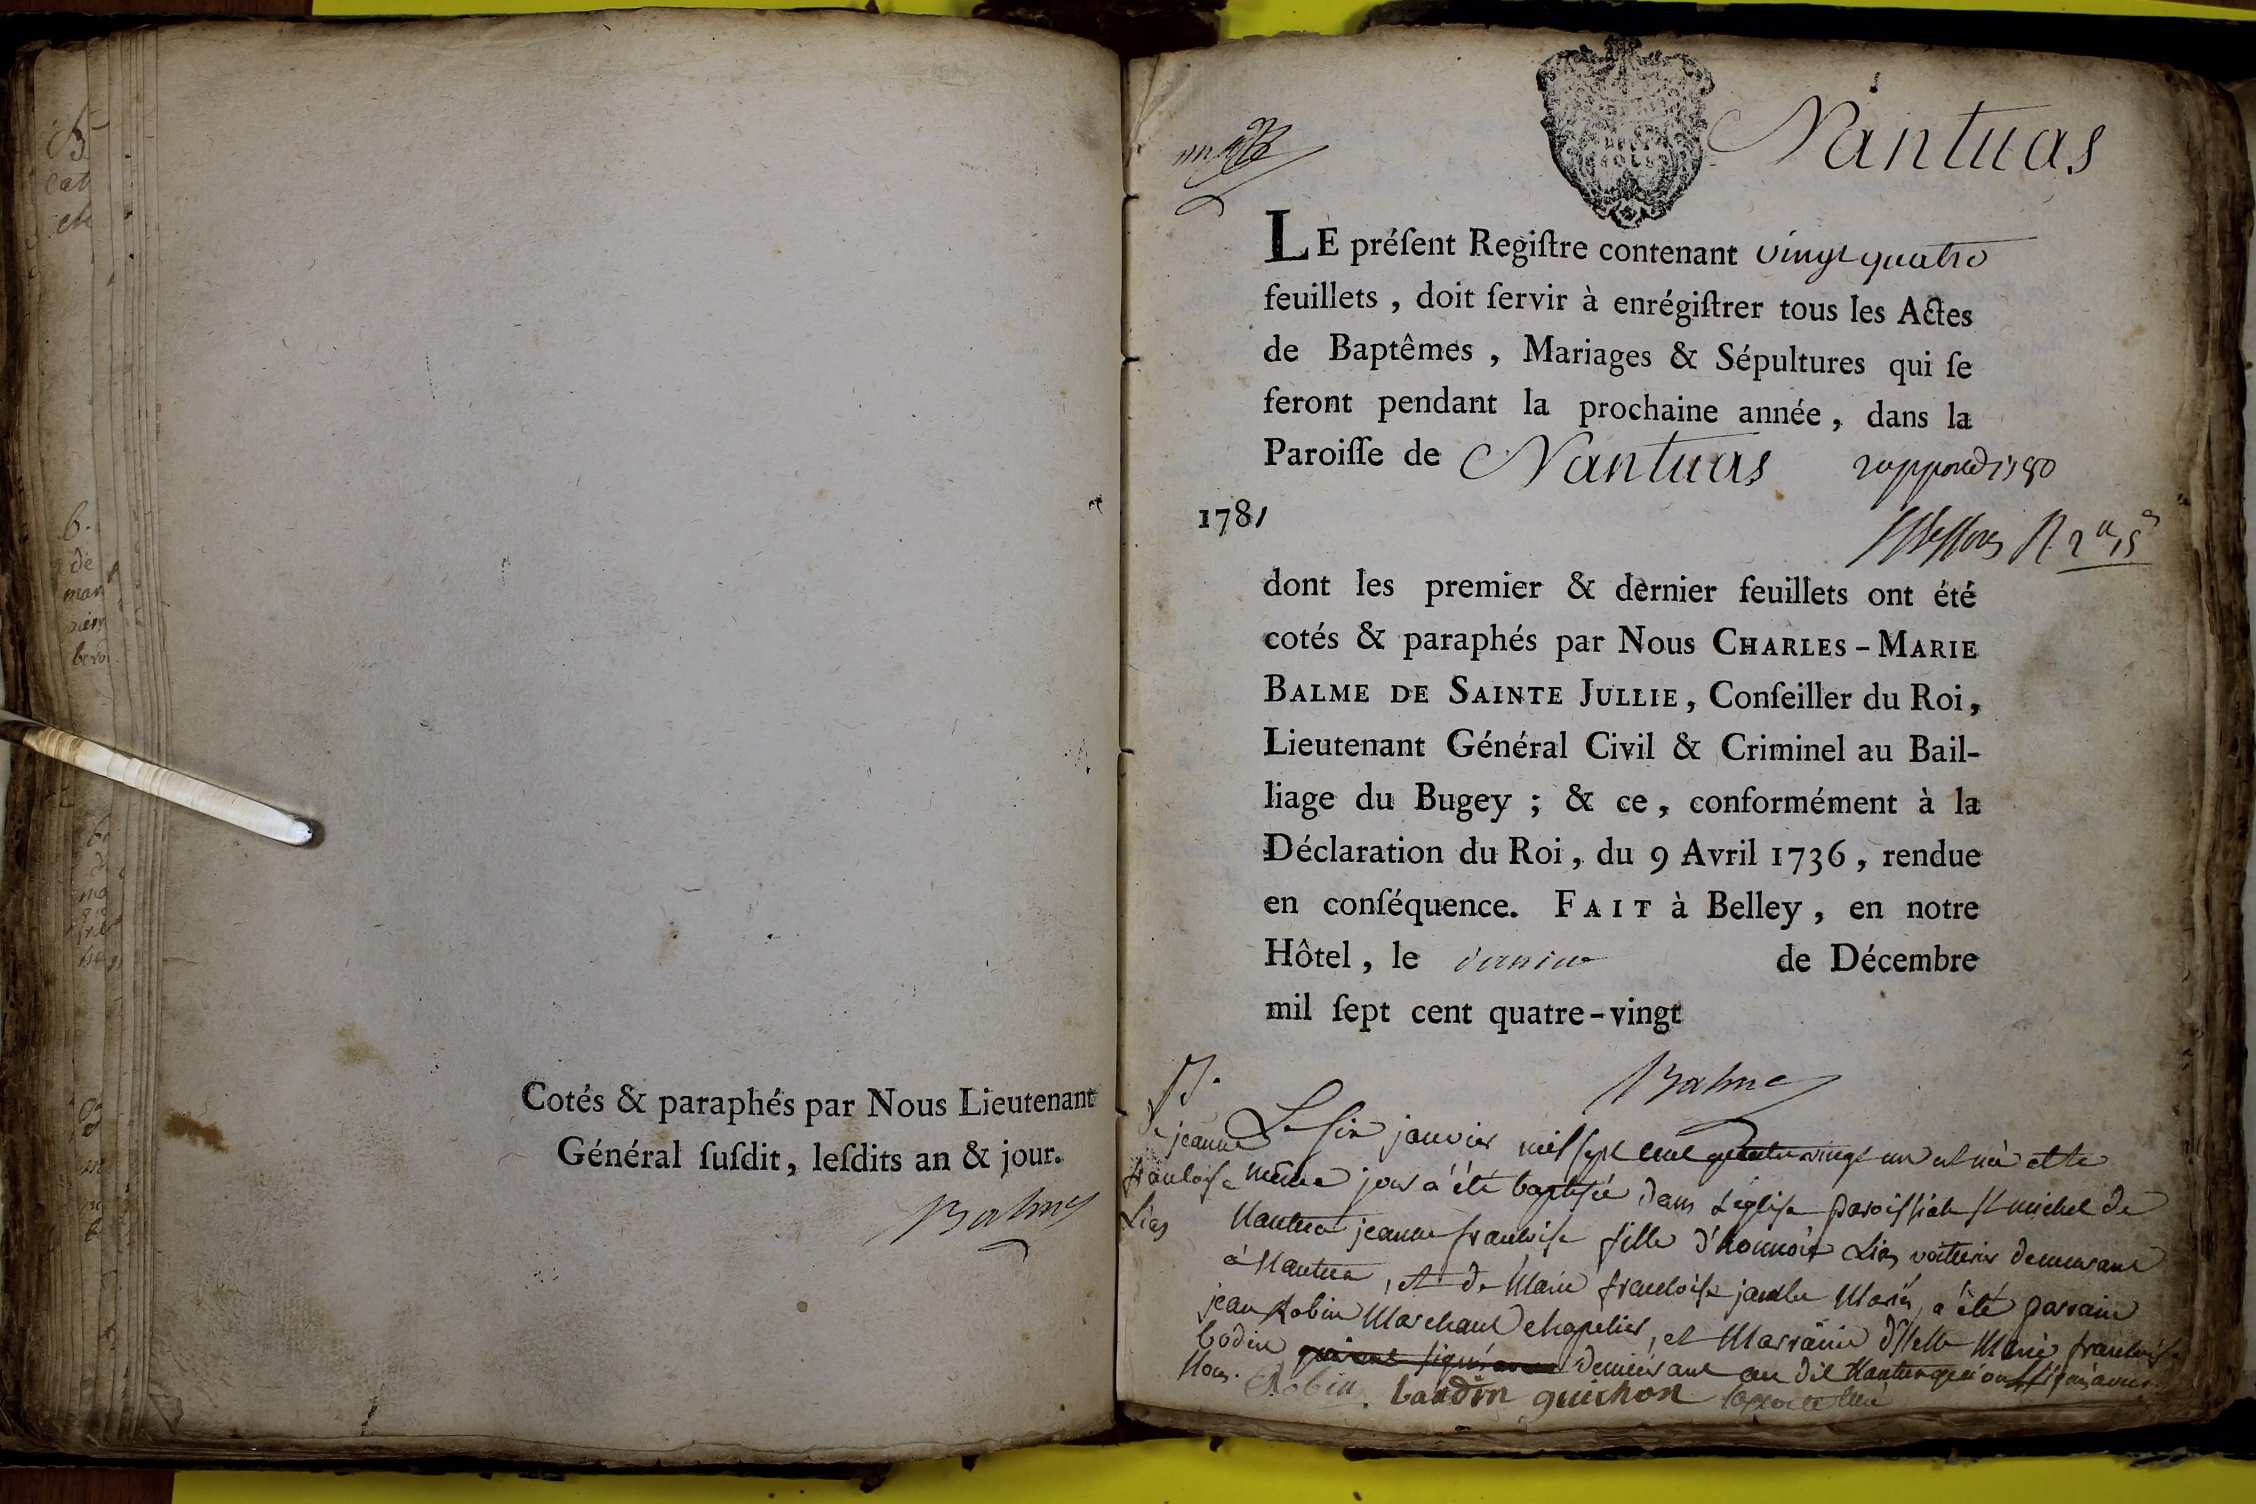 Cotés & paraphés par Nous Lieutenant
Général ſuſdit, leſdits an & jour.
Balme
Nantuas
LE préſent Regiſtre contenant vingt quatre
feuillets, doit ſervir à enrégiſtrer tous les Actes
de Baptêmes, Mariages & Sépultures qui ſe
feront pendant la prochaine année, dans la
Paroiſſe de Nantuas
1781
dont les premier & dernier feuillets ont été
cotés & paraphés par Nous CHARLES-MARIE
BALME DE SAINTE JULLIE, Conſeiller du Roi,
Lieutenant Général Civil & Criminel au Bail-
liage du Bugey; & ce, conformément à la
Déclaration du Roi, du 9 Avril 1736, rendue
en conſéquence. FAIT à Belley, en notre
Hôtel, le dernier de Décembre
mil ſept cent quatre-vingt
Balme
B.
de jeanne
francoise
Lias
Le six janvier mil sept cent quatre vingt un est née et le
même jour a été baptisée dans l'église paroissiale st michel de
Nantua jeanne francoise fille d'honnoré Lias voiturier demeurant
à Nantua, et de Marie francoise mariés, a été parrain
jean Robin Marchand chapelier, et Marraine dlle Marie francoise
bodin qui ont signé avec demeurant au dit Nantua qui ont signé avec
Nous.
Robin bardin guichon